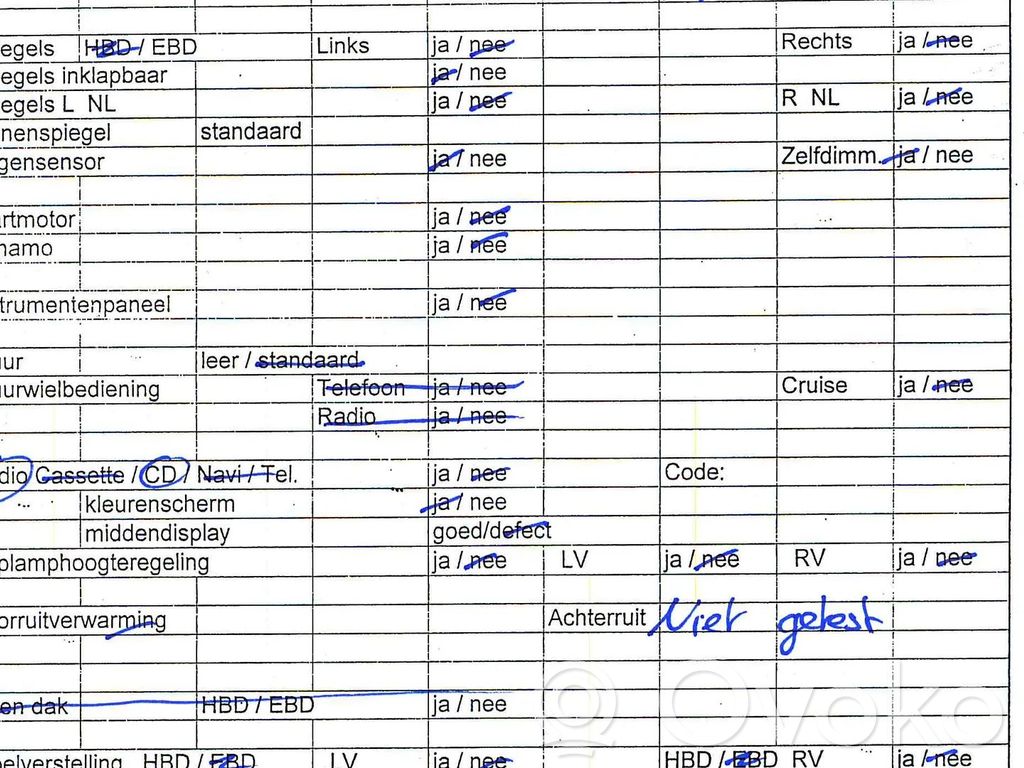 egels HBD / EBD Links ja / nee Rechts ja / nee
egels inklapbaar ja / nee
egels L NL ja / nee R NL ja / nee
nenspiegel standaard
gensensor ja / nee Zelfdimm. ja / nee
artmotor ja / nee
namo ja / nee
trumentenpaneel ja / nee
uur leer / standaard
uurwielbediening Telefoon ja / nee Cruise ja / nee
Radio ja / nee
dio Cassette / CD / Navi / Tel. ja / nee Code:
kleurenscherm ja / nee
middendisplay goed/defect
olamphoogteregeling ja / nee LV ja / nee RV ja / nee
orruitverwarming Achterruit Niet getest
en dak HBD / EBD ja / nee
elverstelling HBD / EBD LV ja / nee HBD / EBD RV ja / nee
Ovoko